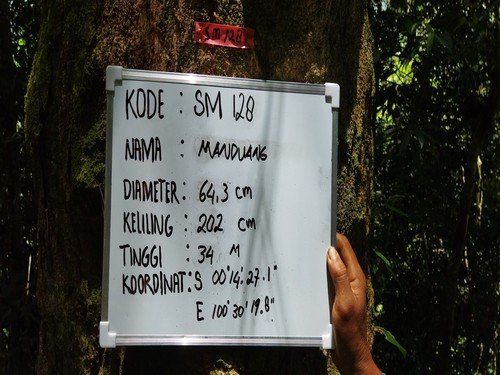 SM 128
KODE : SM 128
NAMA : MANDUANG
DIAMETER : 64,3 cm
KELILING : 202 cm
TINGGI : 34 M
KOORDINAT : S 00°14'27.1"
E 100°30'19.8"